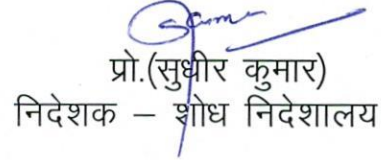 प्रो.(सुधीर कुमार)
निदेशक – शोध निदेशालय